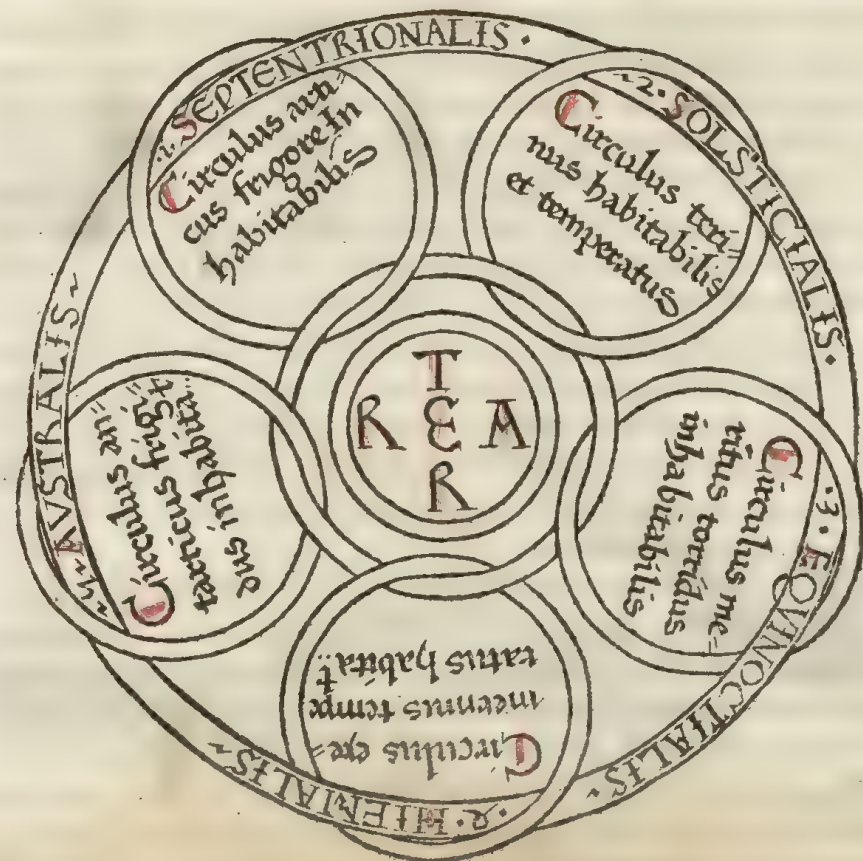 .1. SEPTENTRIONALIS .
Circulus arti=
cus frigore In
habitabilis
~2. SOLSTICIALIS.
Circulus teri=
nus habitabilis
et temperatus
.3. EQVINOCTIALIS~
Circulus me=
rinus torridus
inhabitabilis
.4. HIEMALIS~
Circulus exe=
merinus tempe
ratus habitat
~5~ AVSTRALIS~
Circulus an=
tarticus frigi=
dus inhabitat
T
R E A
R